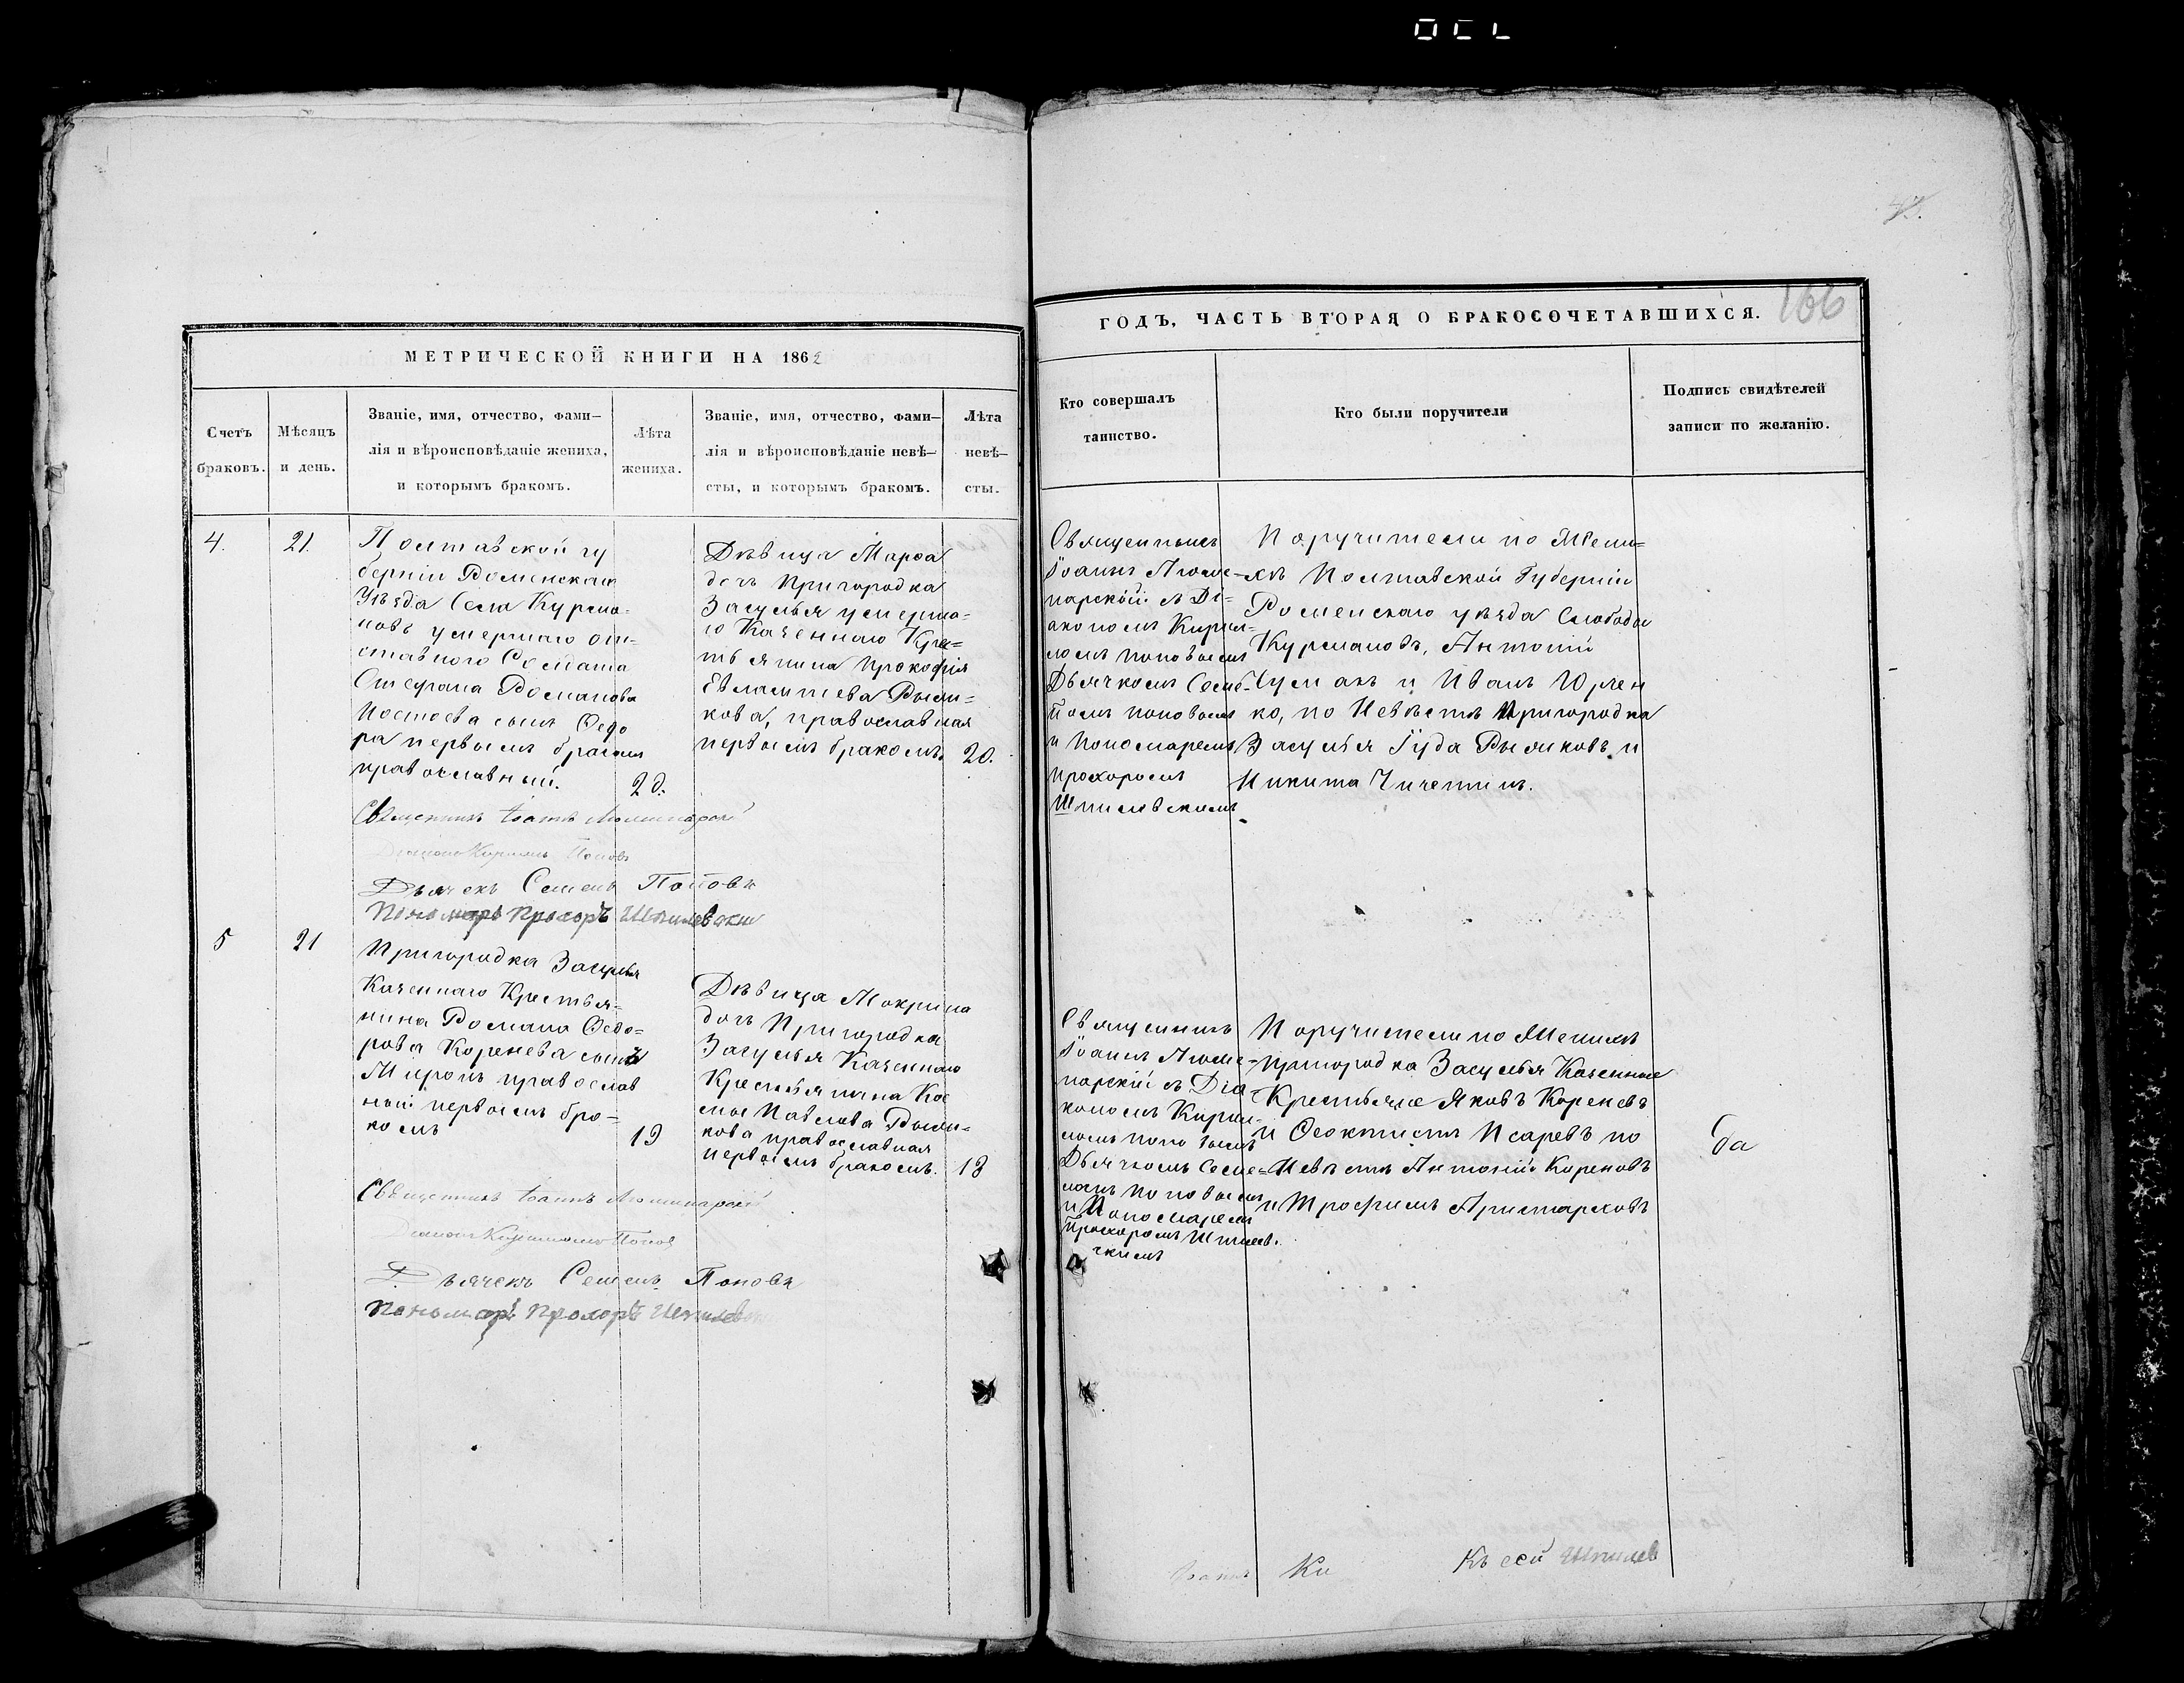 166
МЕТРИЧЕСКОЙ КНИГИ НА 1862
ГОДЪ, ЧАСТЬ ВТОРАЯ О БРАКОСОЧЕТАВШИХСЯ.
Счетъ
браковъ.
Мѣсяцъ
и день.
Званіе, имя, отчество, фами-
лія и вѣроисповѣданіе жениха,
и которымъ бракомъ.
Лѣта
жениха.
Званіе, имя, отчество, фами-
лія и вѣроисповѣданіе невѣ-
сты, и которымъ бракомъ.
Лѣта
невѣ-
сты.
Кто совершалъ
таинство.
Кто были поручители
Подпись свидѣтелей
записи по желанію.
4.
21.
Полтавской гу
берніи Роменскаго
Уѣзда Села Курма-
новъ умершаго от-
ставного Солдата
Стефана Романова
сынъ Федо
ра первымъ бракомъ
православный.
20.
Дѣвица Марфа
дочь Пригородка
Засулья умерша-
го Казеннаго Кре-
стьянина Прокофія
Евлампіева Рыжи-
кова, православная
первымъ бракомъ.
20.
Священникъ
Іоаннъ
съ Ді-
акономъ Кирил-
ломъ Поповымъ
Дьячкомъ Семе-
номъ Поповымъ
и Пономаремъ
Прохоромъ
Шпилевскимъ
Поручители по Жени-
хѣ Полтавской Губерніи
Роменскаго уѣзда Слободы
Курмановъ, Антоній
Чумакъ и Иванъ Юрчен
ко, по Невѣстѣ Пригородка
Засулья Іуда Рыжиковъ и
Никита
Священникъ Іоаннъ
Діаконъ Кириллъ Поповъ
Дьячекъ Семенъ Поповъ
Пономарь Прохоръ Шпилевский
5
21
Пригородка Засулья
Казеннаго Крестья-
нина Романа Федо-
рова Коренева сынъ
Миронъ православ
ный первымъ бра-
комъ
19
Дѣвица Макрина
дочь Пригородка
Засулья Казеннаго
Крестьянина Кос
мы Павлова Рыжи-
кова православная
первымъ бракомъ.
18
Священникъ
Іоаннъ
съ Діа-
кономъ Кирил-
ломъ Поповымъ
Дьячкомъ Семе-
номъ Поповымъ
и Пономаремъ
Прохоромъ Шпилев-
скимъ
Поручители по Женихѣ
Пригородка Засулья Казенные
Крестьяне Яковъ Кореневъ
и Феоктистъ Псаревъ по
Невѣстѣ Антоній Кореневъ
и Трофимъ Аристарховъ
да
Священникъ Іоаннъ
Діаконъ Кириллъ Поповъ
Дьячекъ Семенъ Поповъ
Пономарь Прохоръ Шпилевский
Іоаннъ Ки
Къ сей Шпилев